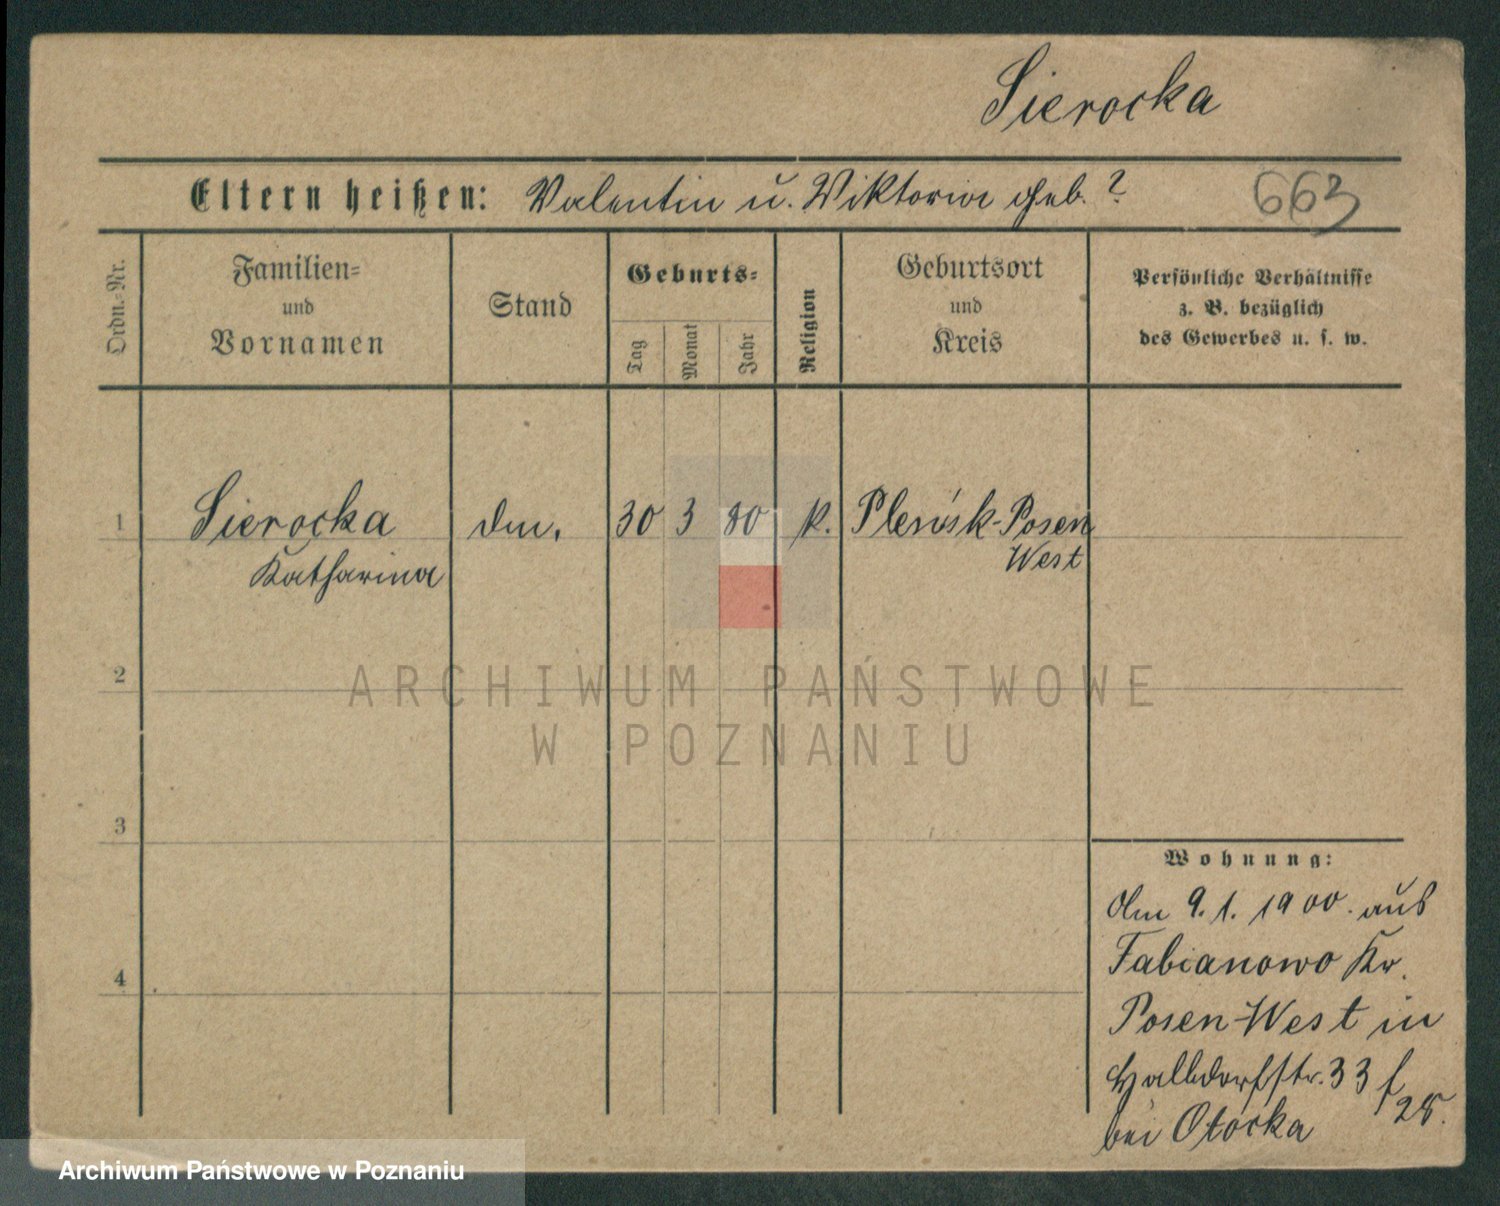 Sierocka
Eltern heißen: Valentin u. Viktoria geb. ?
663
Ordn.=Nr.
Familien=
und
Vornamen
Stand
Geburts=
Tag
Monat
Jahr
Religion
Geburtsort
und
Kreis
Persönliche Verhältnisse
z. B. bezüglich
des Gewerbes u. s. w.
1 Sierocka 30 3 80 k. Plewisk-Posen
Katharina West
2
ARCHIWUM PAŃSTWOWE
W POZNANIU
3
4
Wohnung:
Am 9. 1. 1900. aus
Fabianowo Kr.
Posen-West in
Halbdorfstr. 33
bei Otocka
Archiwum Państwowe w Poznaniu